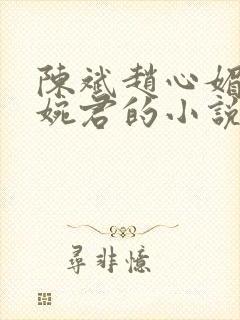 陳斌趙心媚
婉君的小説
尋非憶